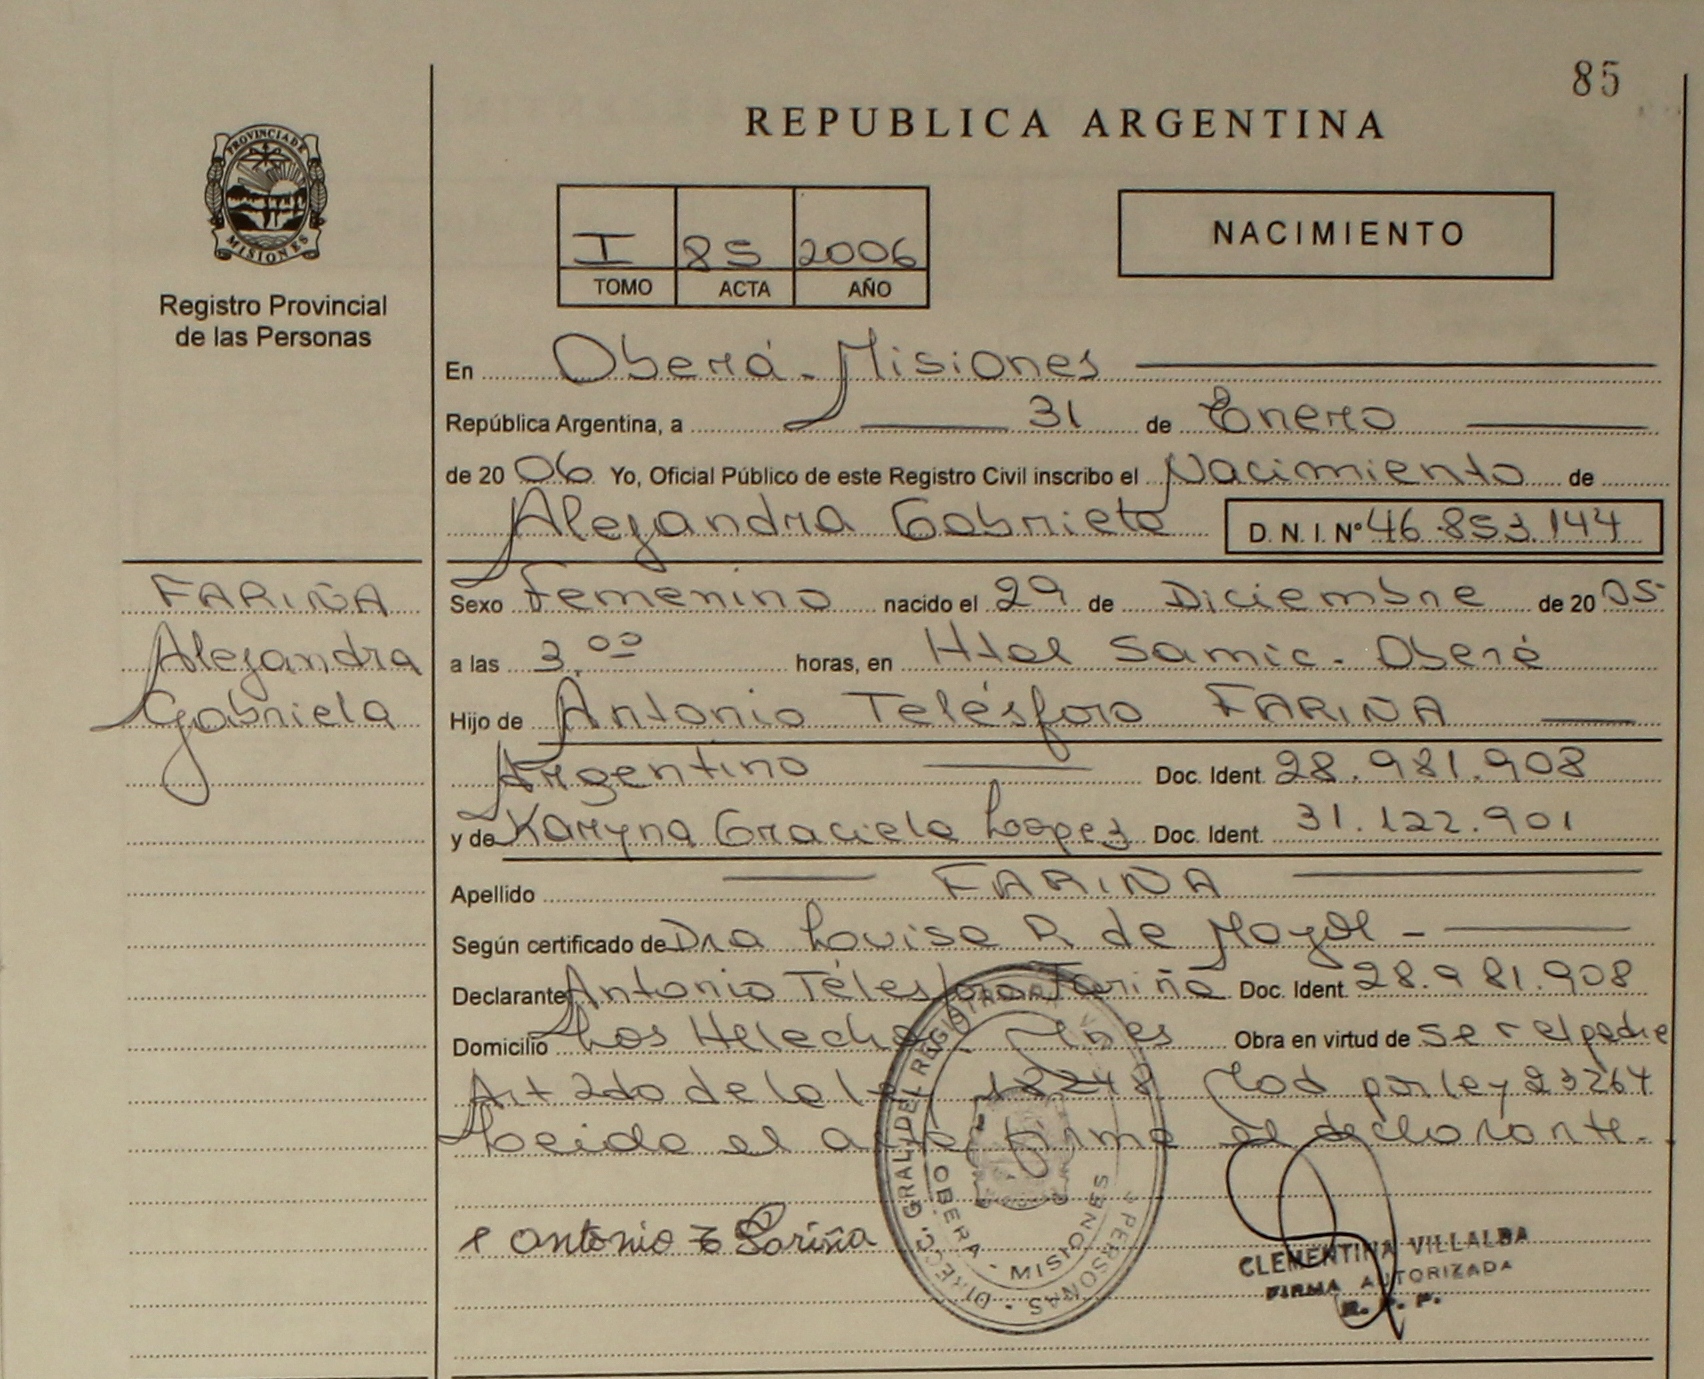 85
REPUBLICA ARGENTINA
PROVINCIA DE
MISIONES
Registro Provincial
de las Personas
I 85 2006
TOMO ACTA AÑO
NACIMIENTO
En Oberá - Misiones
República Argentina, a 31 de Enero
de 2006 Yo, Oficial Público de este Registro Civil inscribo el Nacimiento de
Alejandra Gabriela D. N. I. Nº 46.853.144
FARIÑA
Alejandra
Gabriela
Sexo Femenino nacido el 29 de Diciembre de 2005
a las 3.00 horas, en Htal Samic - Oberá
Hijo de Antonio Telésforo FARIÑA
Argentino Doc. Ident. 28.981.908
y de Karyna Graciela Lopez Doc. Ident. 31.122.901
Apellido FARIÑA
Según certificado de Dra Louisa R de
Declarante Antonio Télesforo Fariña Doc. Ident. 28.981.908
Domicilio Los Helechos - Mnes Obra en virtud de ser el padre
Art 2do de la ley 18248 Mod por ley 23264
Leida el acta firma el declarante.
Antonio T Fariña
DIRECC. GRAL. DEL REGISTRO PERSONAS
OBERA - MISIONES
CLEMENTINA VILLALBA
FIRMA AUTORIZADA
R. P. P.